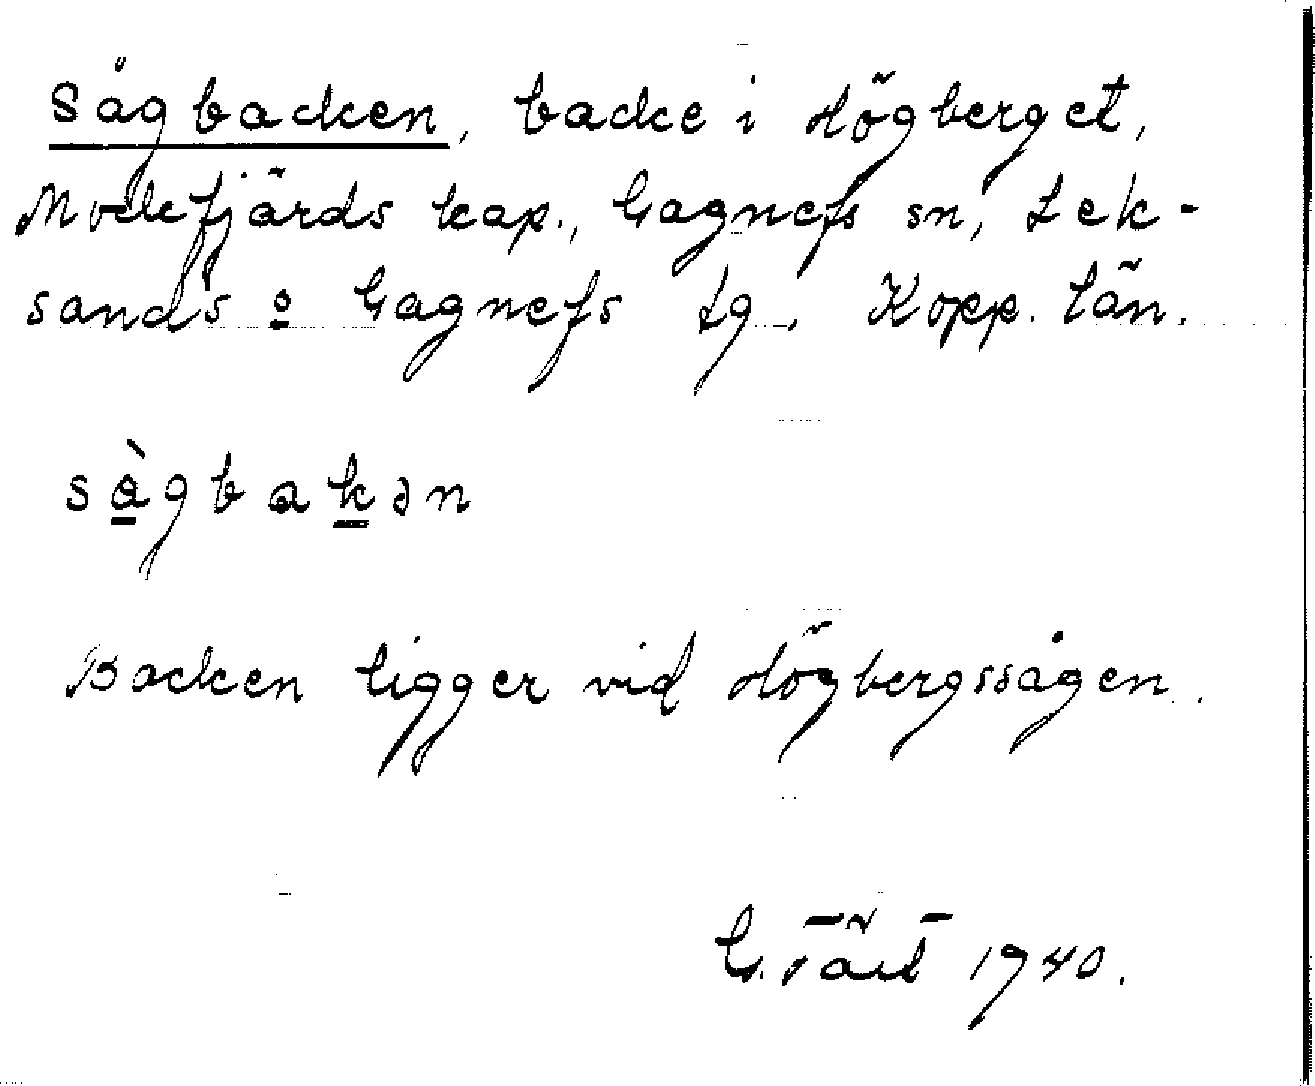 Sågbacken, backe i Högberget,
Mockfjärds kap., Gagnefs sn, Lek-
sands o Gagnefs tg. Kopp. län.
sàgbakən
Backen ligger vid Högbergssågen.
G. 1940.